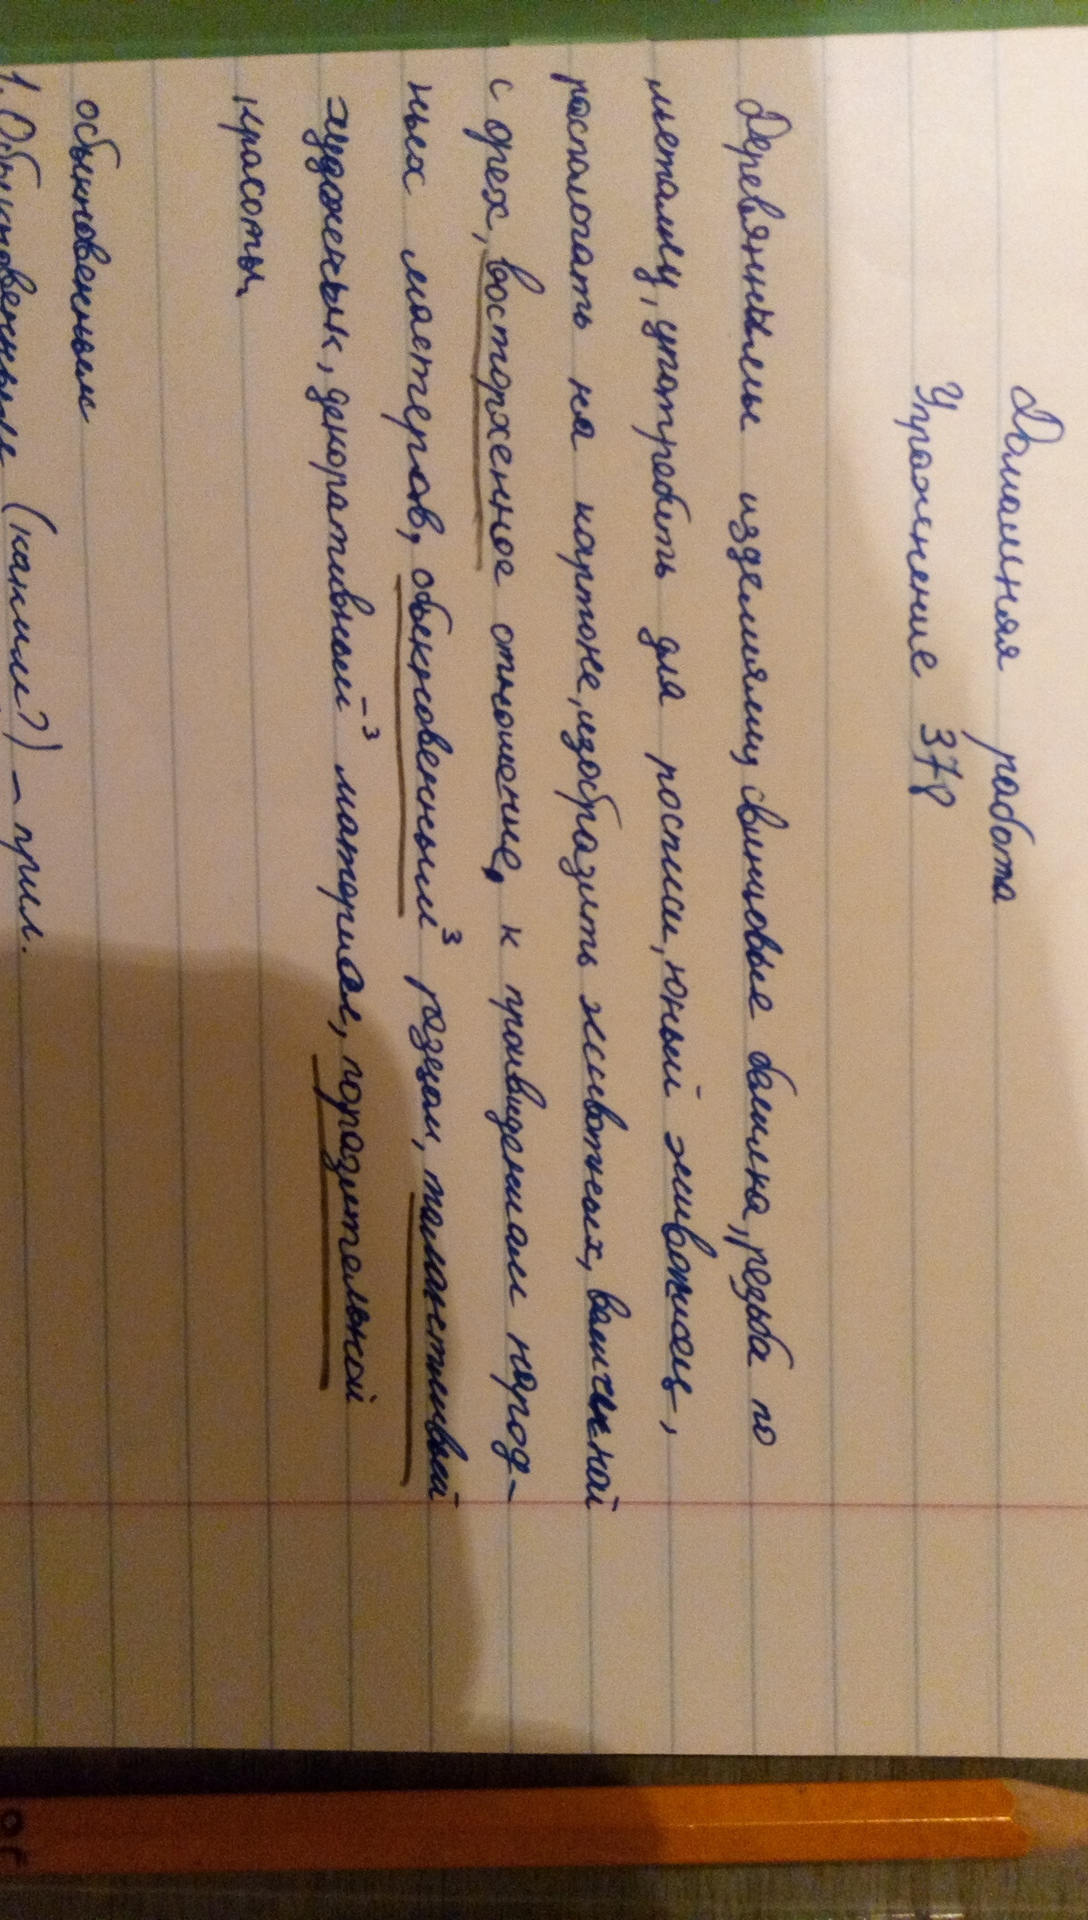 Домашняя работа
Упражнение 378
Деревянные изделиямų свинцовые белила, резьба по
металлу, упатребить для росписи, юный живописец,
распологать на картоне, изобразить животных, величеной
с орех, восторженное отношение, к произведениям народ-
ных мастеров, обыкновенным³ резцом, талантливый
художник, декоративный⁻³ материал, поразительной
красоты,
обыкновенным
1. Обыкновенным (каким?) - прил.